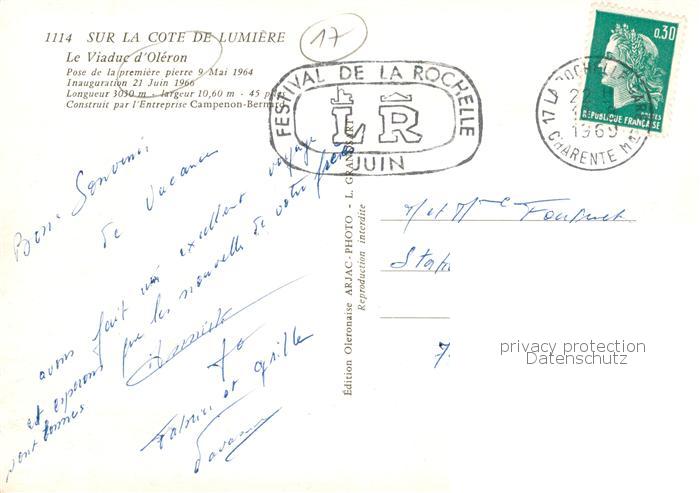 1114 SUR LA COTE DE LUMIÈRE
Le Viaduc d'Oléron
Pose de la première pierre 9 Mai 1964
Inauguration 21 Juin 1966
Longueur 3030 m - largeur 10,60 m - 45
Construit par l'Entreprise Campenon-Bernard
17
FESTIVAL DE LA ROCHELLE
LR
JUIN
0.30
POSTES
REPUBLIQUE FRANÇAISE
17 LA ROCHELLE
22
1969
CHARENTE
Bons Souvenirs
de vacances
avons fait un excellent voyage
et espérons que les nouvelles de votre frère
sont bonnes
Fabrice et
M et Mme
7.
Édition Oleronaise ARJAC-PHOTO - L.
Reproduction interdite
privacy protection
Datenschutz